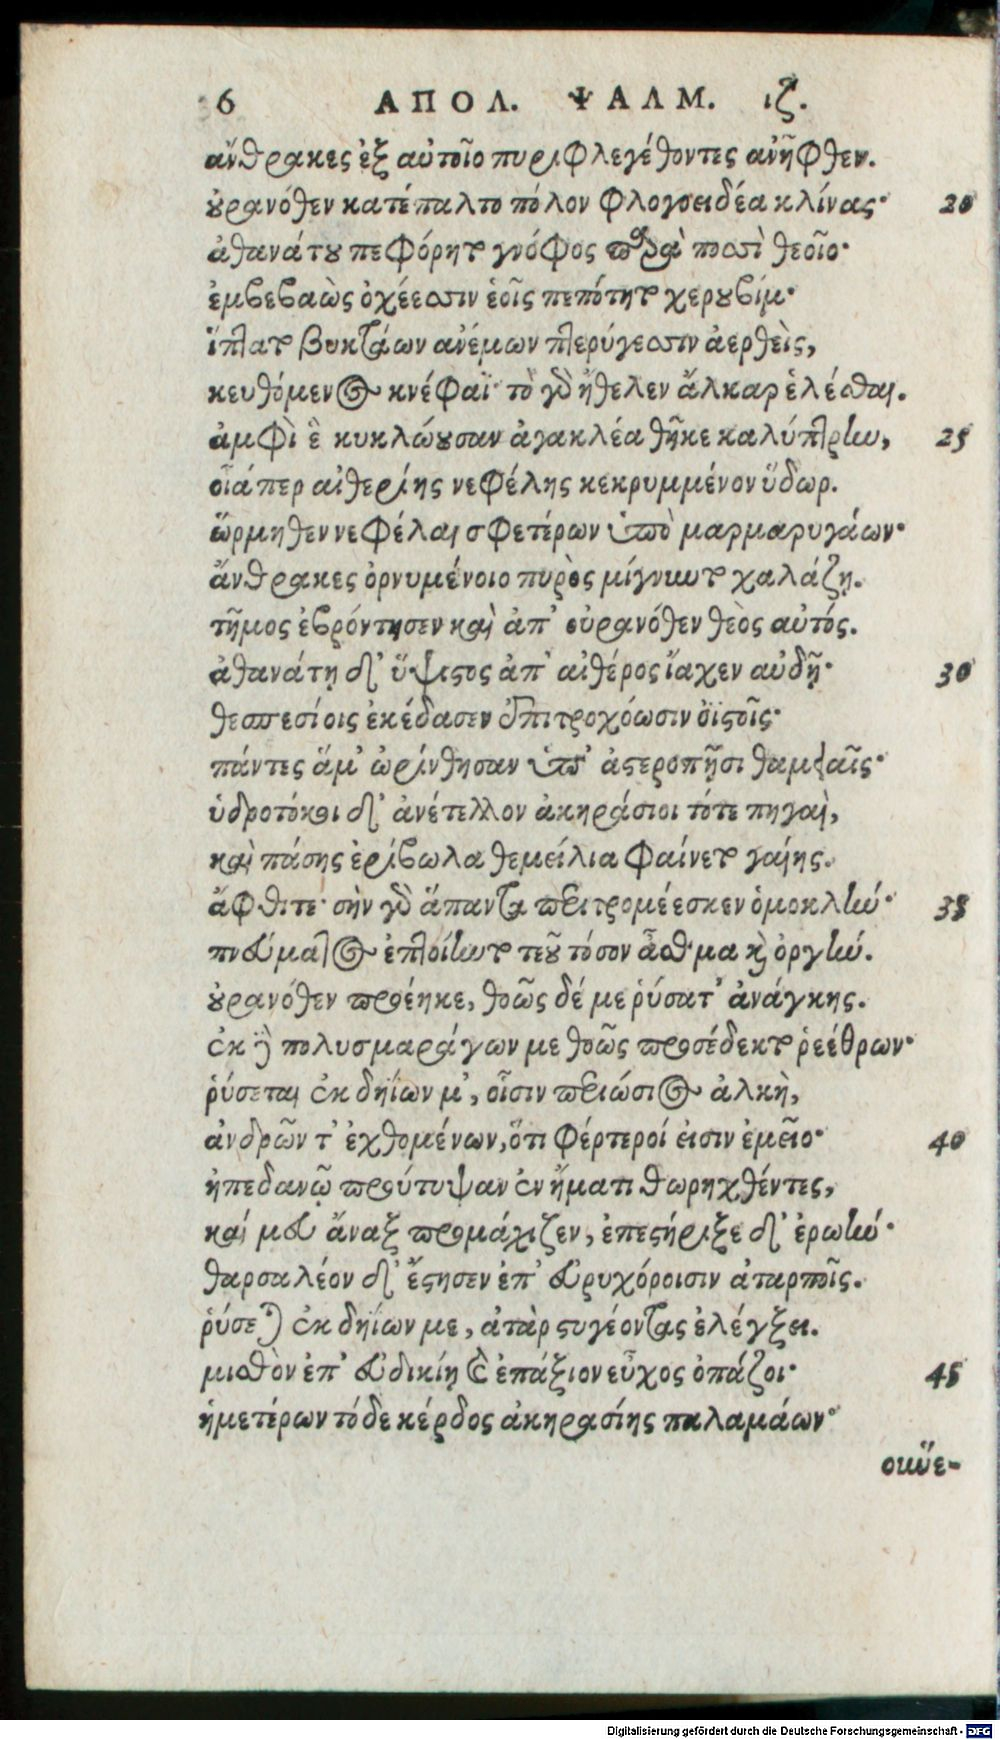 6 ΑΠΟΛ. ΨΑΛΜ. ιζ.
ἄνθρακες ἐξ αὐτοῖο πυριφλεγέθοντες ἀνῆφθεν.
οὐρανόθεν κατέπαλτο πόλον φλογοειδέα κλίνας· 20
ἀθανάτου πεφόρητο γνόφος παρὰ ποσὶ θεοῖο·
ἐμβεβαὼς ὀχέεσσιν ἑοῖς πεπότητο χερουβίμ·
ἵπτατο βυκτάων ἀνέμων πτερύγεσσιν ἀερθεὶς,
κευθόμενος κνέφαϊ· τὸ γὰρ ἤθελεν ἄλκαρ ἑλέσθαι.
ἀμφὶ ἓ κυκλώουσαν ἀγακλέα θῆκε καλύπτρην, 25
οἷά περ αἰθερίης νεφέλης κεκρυμμένον ὕδωρ.
ὥρμηθεν νεφέλαι σφετέρων ὑπὸ μαρμαρυγάων·
ἄνθρακες ὀρνυμένοιο πυρὸς μίγνυντο χαλάζῃ.
τῆμος ἐβρόντησεν καὶ ἀπ' οὐρανόθεν θεὸς αὐτός.
ἀθανάτῃ δ' ὕψιστος ἀπ' αἰθέρος ἴαχεν αὐδῇ· 30
θεσπεσίοις ἐκέδασεν ἐπιτροχόωσιν ὀϊστοῖς·
πάντες ἅμ' ὠρίνθησαν ὑπ' ἀστεροπῇσι θαμειαῖς·
ὑδροτόκοι δ' ἀνέτελλον ἀκηράσιοι τότε πηγαὶ,
καὶ πάσης ἐρίβωλα θεμείλια φαίνετο γαίης.
ἄφθιτε· σὴν γὰρ ἅπαντα περιτρομέεσκεν ὁμοκλήν· 35
πνεύματος ἐπτοίηντο τεοῦ τόσον ἆσθμα καὶ ὀργήν.
οὐρανόθεν προέηκε, θοῶς δέ με ῥύσατ' ἀνάγκης.
ἐκ δὲ πολυσμαράγων με θοῶς προσέδεκτο ῥεέθρων·
ῥύσεται ἐκ δηΐων μ', οἷσιν περιώσιος ἀλκὴ,
ἀνδρῶν τ' ἐχθομένων, ὅτι φέρτεροί εἰσιν ἐμεῖο· 40
ἠπεδανῷ προύτυψαν ἐν ἤματι θωρηχθέντες,
καί μευ ἄναξ προμάχιζεν, ἐπεστήριξε δ' ἐρωήν·
θαρσαλέον δ' ἔστησεν ἐπ' εὐρυχόροισιν ἀταρποῖς.
ῥύσεται ἐκ δηΐων με, ἀτὰρ στυγέοντας ἐλέγξει.
μισθὸν ἐπ' εὐδικίῃ δὲ ἐπάξιον εὖχος ὀπάζοι· 45
ἡμετέρων τόδε κέρδος ἀκηρασίης παλαμάων·